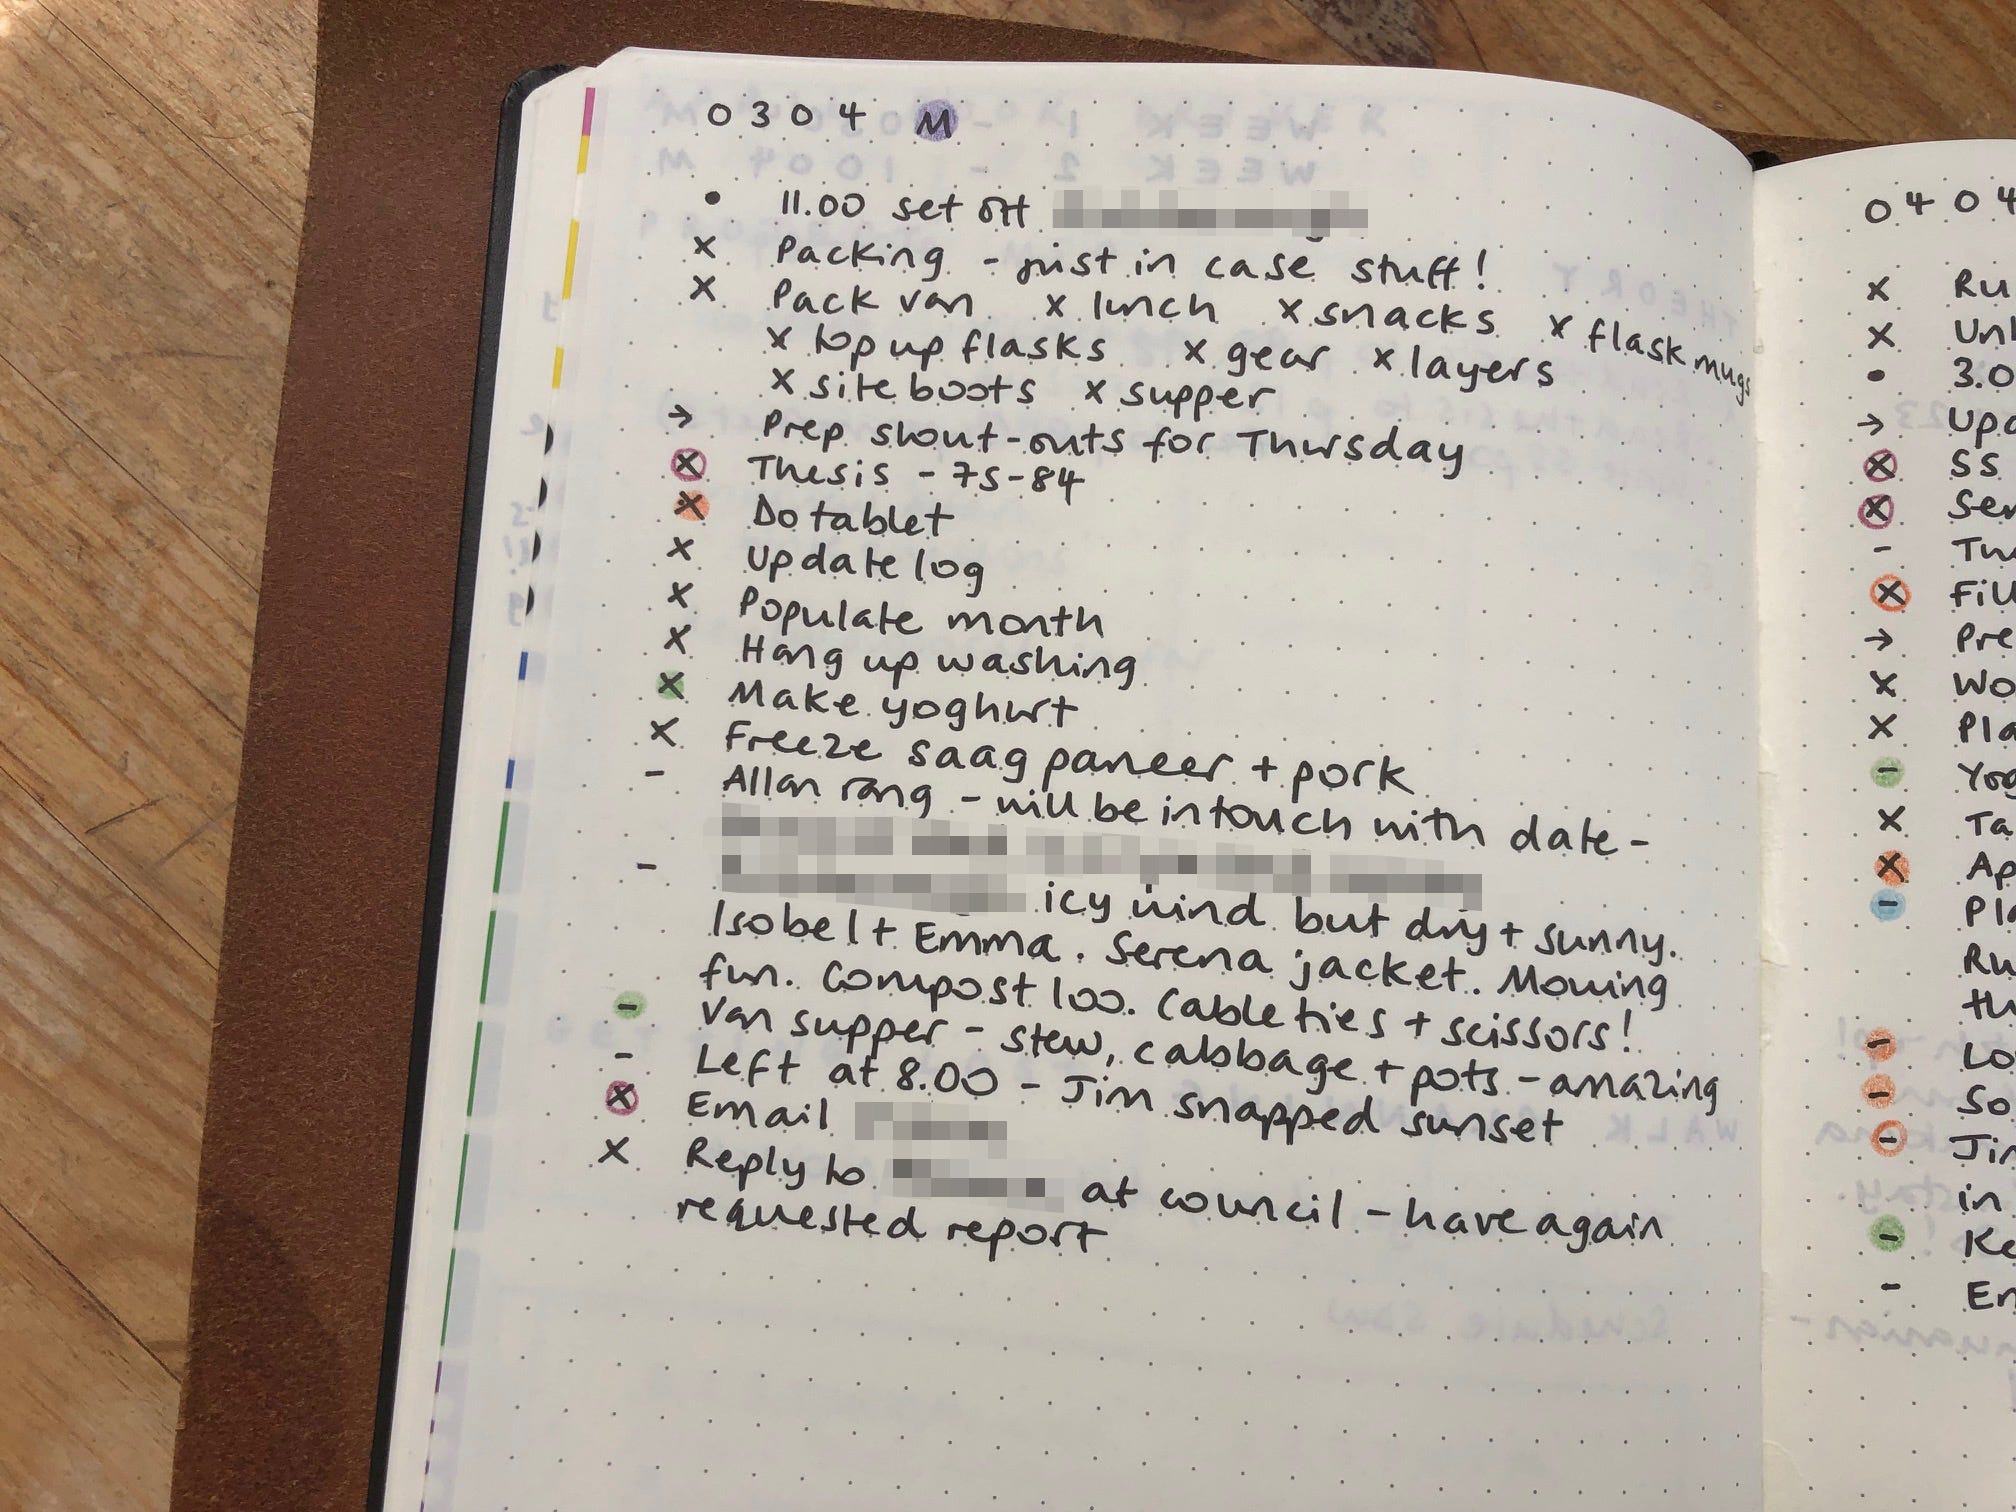 0304 M
• 11.00 set off
x Packing - just in case stuff!
x Pack van x lunch x snacks x flask mugs
x top up flasks x gear x layers
x site boots x supper
→ Prep shout-outs for Thursday
x Thesis - 75-84
x Do tablet
x Update log
x Populate month
x Hang up washing
x Make yoghurt
x Freeze saag paneer + pork
- Allan rang - will be in touch with date -
-
icy wind but dry + sunny.
Isobel + Emma. Serena jacket. Mowing
fun. Compost loo. Cable ties + scissors!
- Van supper - stew, cabbage + pots - amazing
- Left at 8.00 - Jim snapped sunset
x Email
x Reply to at council - have again
requested report
0404
x Ru
x Unl
• 3.0
→ Upd
x SS
x Ser
- Thu
x Fill
→ Pre
x Wo
x Pla
- Yog
x Ta
x Ap
- Pla
Ru
thu
- Lo
- So
- Jin
in
- Ke
- En
WEEK 1 - 0304 M
WEEK 2 - 1004 M
THEORY
WALK
Schedule